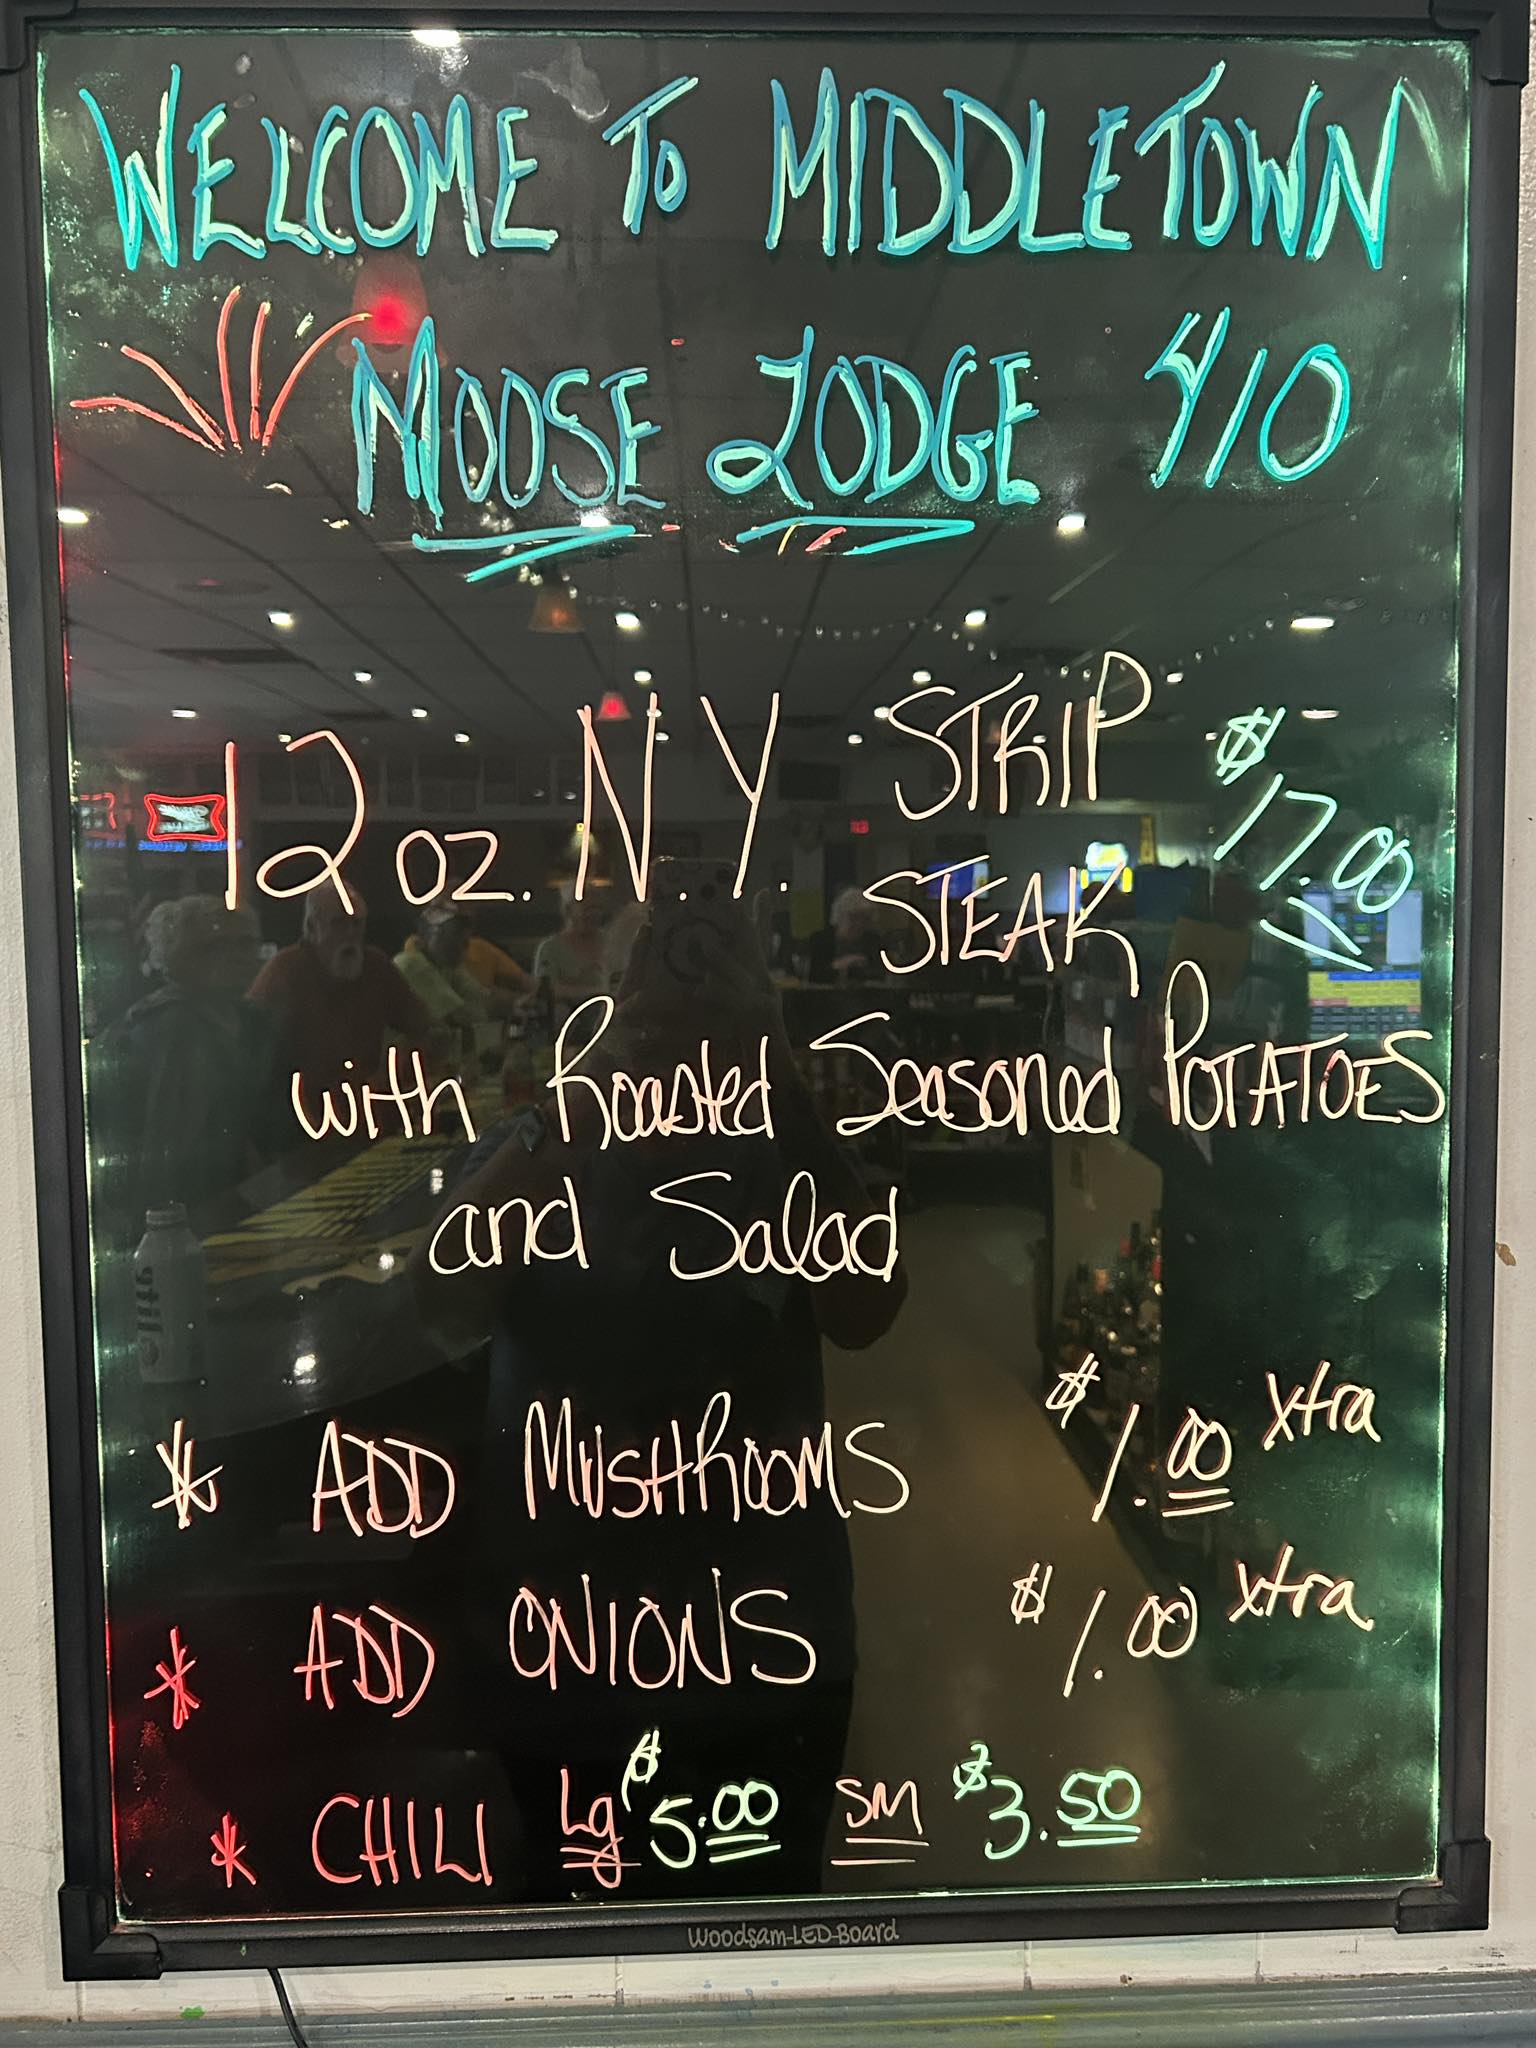 WELCOME TO MIDDLETOWN
MOOSE LODGE 410
12 oz. N.Y. STRIP STEAK $17.00
with Roasted Seasoned POTATOES
and Salad
* ADD MUSHROOMS $1.00 xtra
* ADD ONIONS $1.00 xtra
* CHILI Lg $5.00 SM $3.50
Woodsam-LED-Board